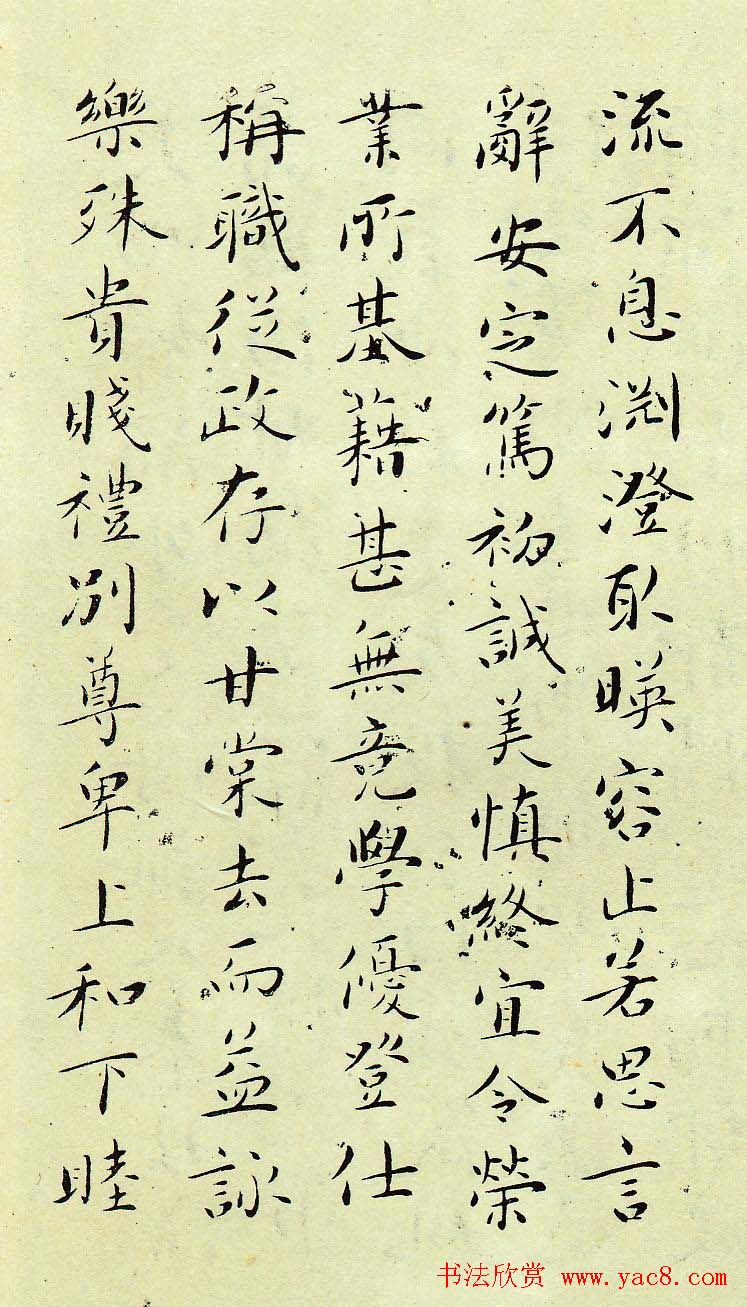 流不息淵澄取暎容止若思言
辭安定篤初誠美慎終宜令榮
業所基藉甚無竟學優登仕
稱職從政存以甘棠去而益詠
樂殊貴賤禮別尊卑上和下睦
书法欣赏 www.yac8.com